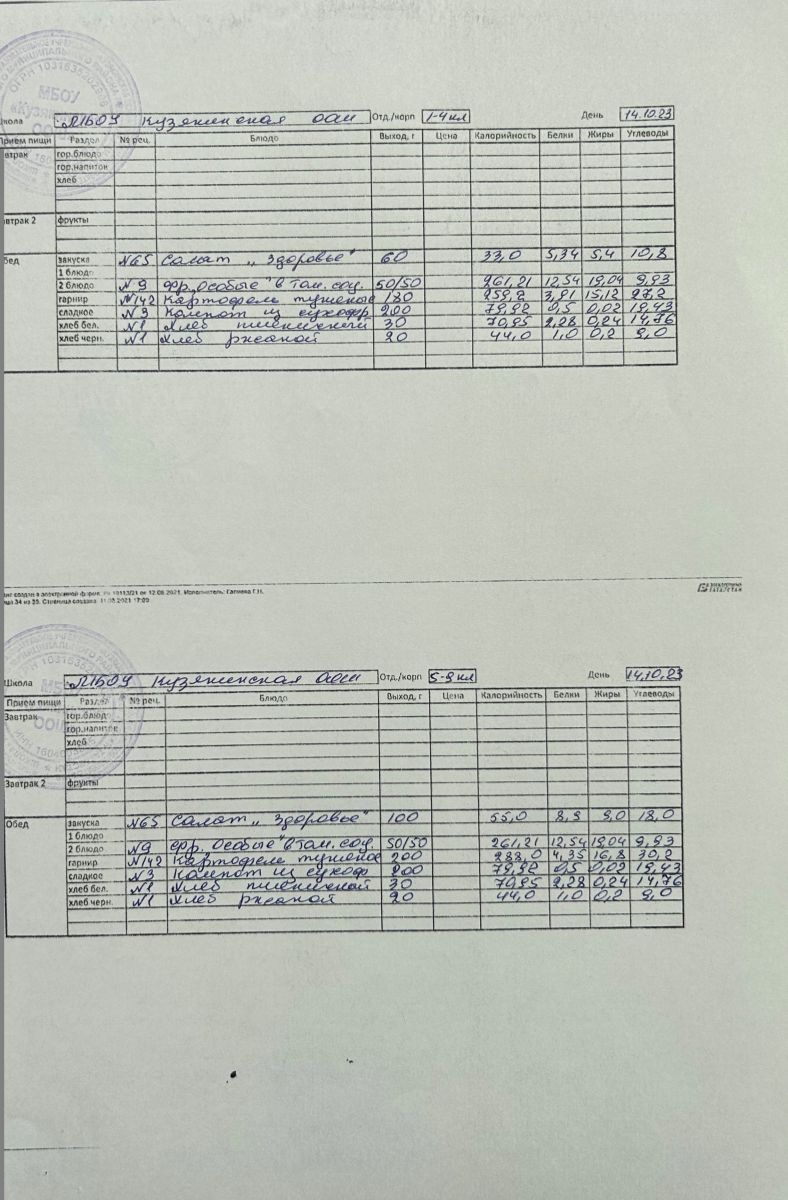 МБОУ
Школа МБОУ Кузякинская ООШ Отд./корп 1-4 кл День 14.10.23
Прием пищи Раздел № рец. Блюдо Выход, г Цена Калорийность Белки Жиры Углеводы
Завтрак гор.блюдо
гор.напиток
хлеб
Завтрак 2 фрукты
Обед закуска №65 Салат „Здоровье" 60 33,0 5,34 5,4 10,8
1 блюдо
2 блюдо №9 фр. „Особые" в том. соу. 50/50 261,21 12,54 19,04 9,93
гарнир №142 Картофель тушеные 180 259,2 3,91 15,12 27,2
сладкое №3 Компот из сухофр 200 79,92 0,5 0,02 19,43
хлеб бел. №1 Хлеб пшеничный 30 70,95 2,28 0,24 14,76
хлеб черн. №1 Хлеб ржаной 20 44,0 1,0 0,2 9,0
12.08.2021. Исполнитель:
34 из 35. Страница создана: 11.08.2021 17:09
ТАТАРСТАН
Школа МБОУ Кузякинская ООШ Отд./корп 5-9 кл День 14.10.23
Прием пищи Раздел № рец. Блюдо Выход, г Цена Калорийность Белки Жиры Углеводы
Завтрак гор.блюдо
гор.напиток
хлеб
Завтрак 2 фрукты
Обед закуска №65 Салат „Здоровье" 100 55,0 8,9 9,0 18,0
1 блюдо
2 блюдо №9 фр. „Особые" в том. соу. 50/50 261,21 12,54 19,04 9,93
гарнир №142 Картофель тушеное 200 288,0 4,35 16,8 30,2
сладкое №3 Компот из сухоф 200 79,92 0,5 0,02 19,43
хлеб бел. №1 Хлеб пшеничной 30 70,95 2,28 0,24 14,76
хлеб черн. №1 Хлеб ржаной 20 44,0 1,0 0,2 9,0